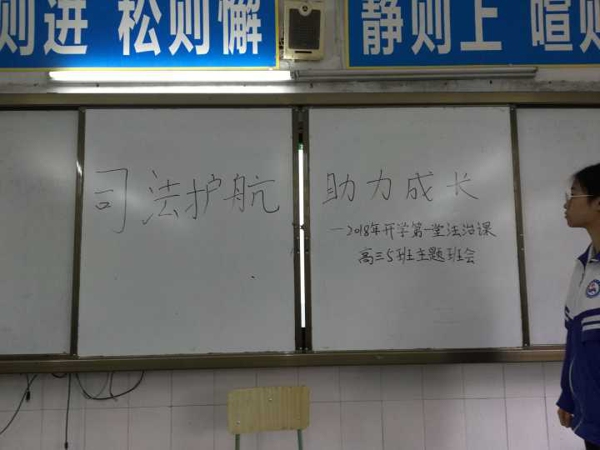 则进 松则懈
静则上 喧则
司法护航 助力成长
一2018年开学第一堂法治课
高三5班主题班会